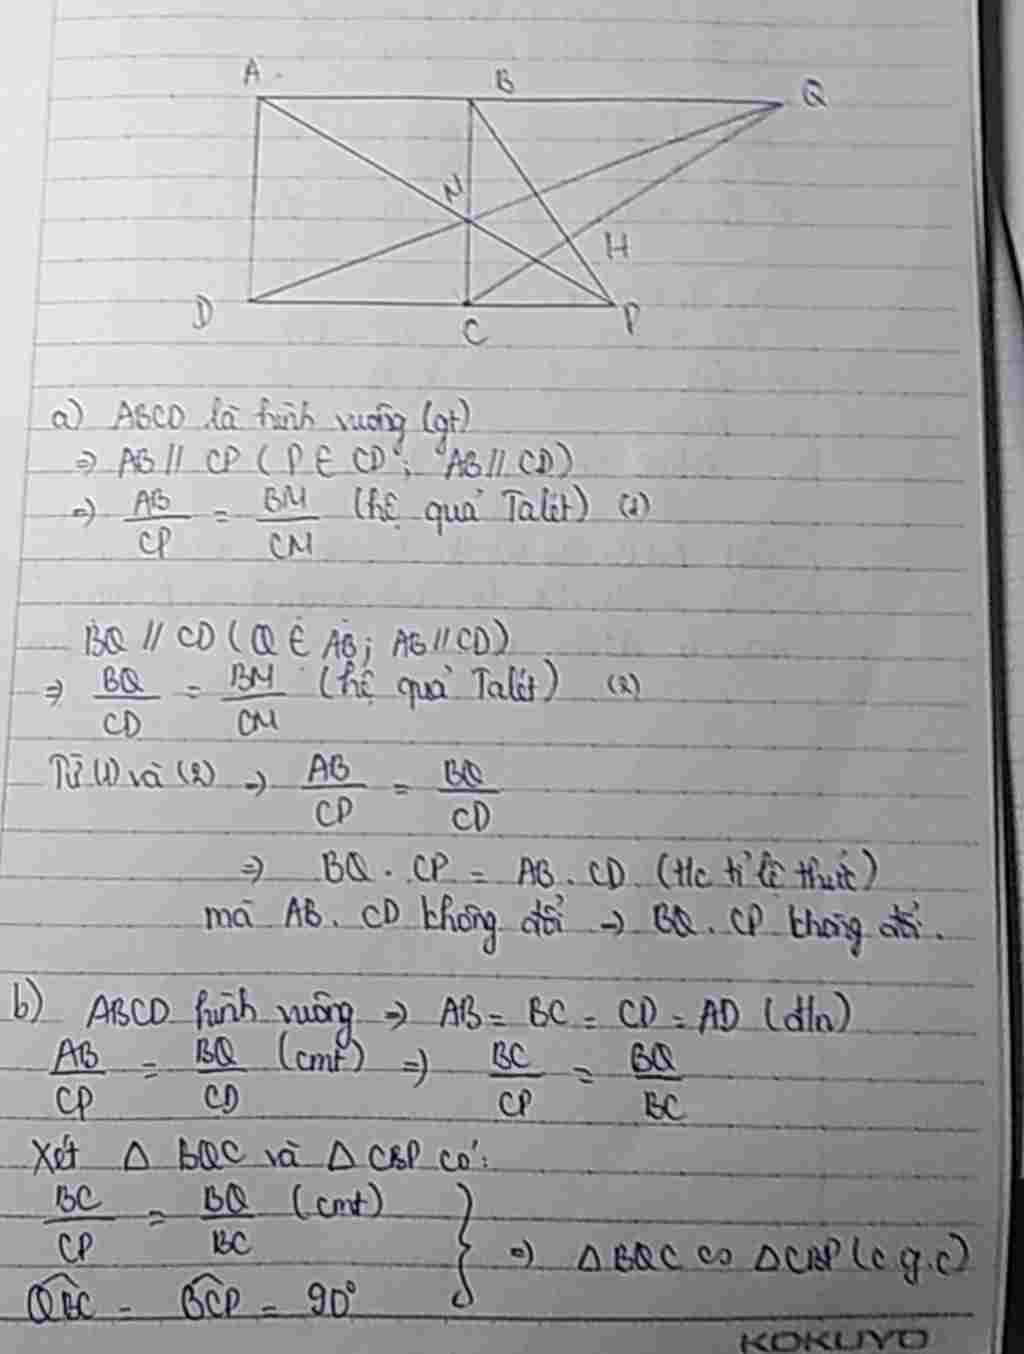 A B Q
N
H
D C P
a) ABCD là hình vuông (gt)
⇒ AB // CP (P ∈ CD; AB // CD)
⇒ AB/CP = BM/CM (hệ quả Talét) (1)
BQ // CD (Q ∈ AB; AB // CD)
⇒ BQ/CD = BM/CM (hệ quả Talét) (2)
Từ (1) và (2) ⇒ AB/CP = BQ/CD
⇒ BQ . CP = AB . CD (t/c tỉ lệ thức)
mà AB . CD không đổi ⇒ BQ . CP không đổi.
b) ABCD hình vuông ⇒ AB = BC = CD = AD (đ/n)
AB/CP = BQ/CD (cmt) ⇒ BC/CP = BQ/BC
Xét Δ BQC và Δ CBP có:
BC/CP = BQ/BC (cmt)
⇒ Δ BQC ∽ Δ CBP (c.g.c)
QBC = BCP = 90°
KOKUYO